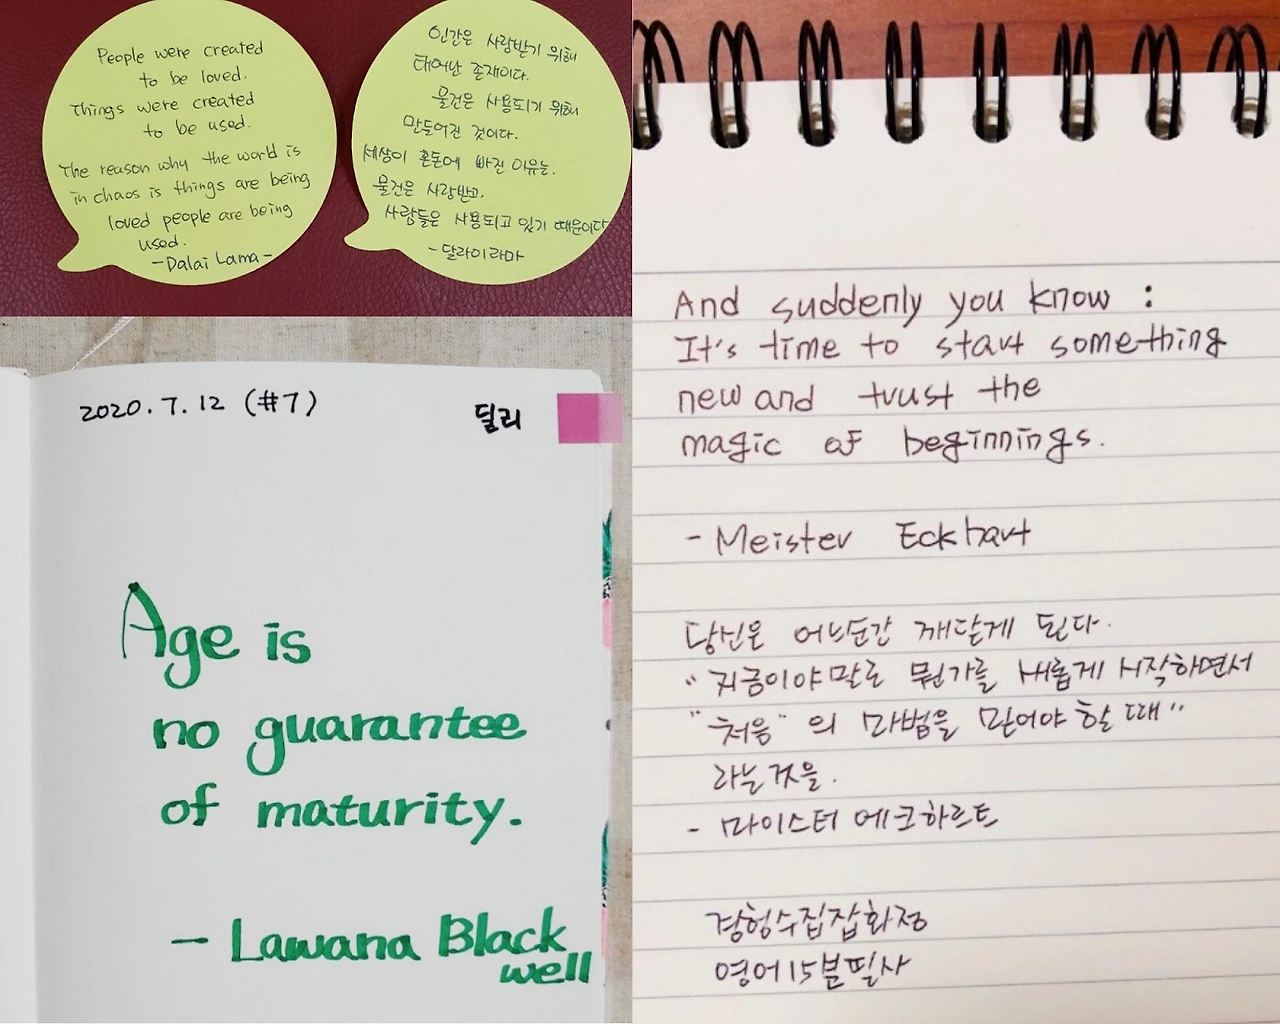 People were created
to be loved.
Things were created
to be used.
The reason why the world is
in chaos is things are being
loved people are being
used.
-Dalai Lama-
인간은 사랑받기 위해
태어난 존재이다.
물건은 사용되기 위해
만들어진 것이다.
세상이 혼돈에 빠진 이유는.
물건은 사랑받고,
사람들은 사용되고 있기 때문이다
-달라이라마
2020.7.12 (#7)
딜리
Age is
no guarantee
of maturity.
- Lawana Black
well
And suddenly you know :
It's time to start something
new and trust the
magic of beginnings.
- Meister Eckhart
당신은 어느순간 깨닫게 된다.
"지금이야말로 뭔가를 새롭게 시작하면서
"처음"의 마법을 믿어야 할 때"
라는 것을.
- 마이스터 에크하르트
경험수집잡화점
영어15분필사